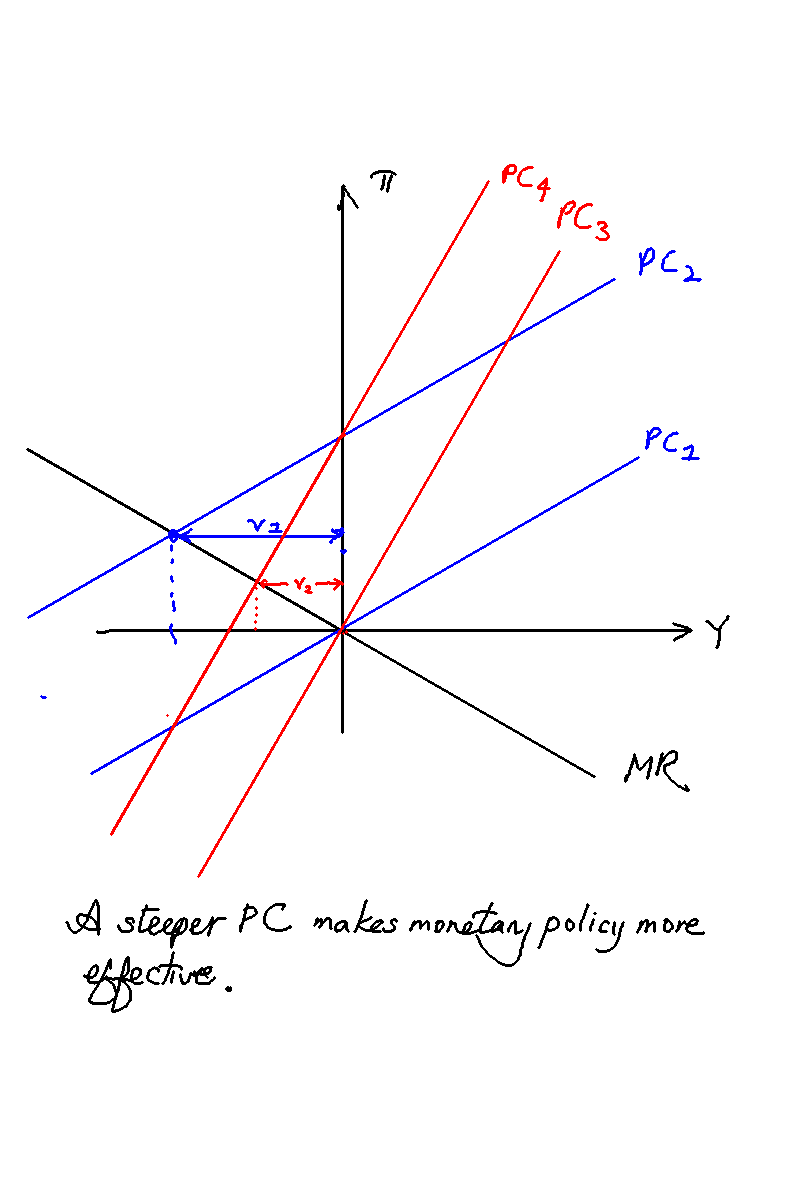 π
PC4
PC3
PC2
PC1
v1
v2
Y
MR
A steeper PC makes monetary policy more
effective.